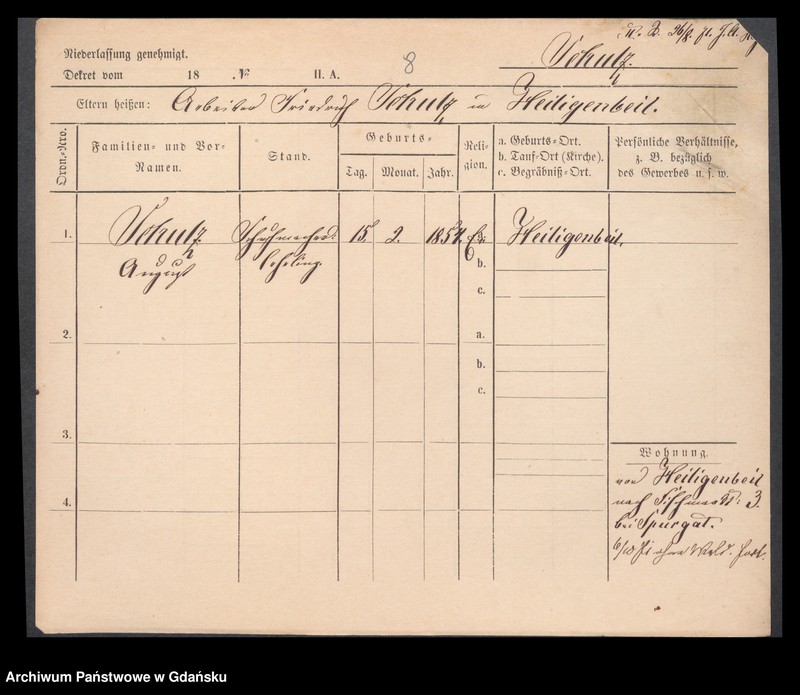 8
Schultz.
Niederlassung genehmigt.
Dekret vom 18 . № II. A.
Eltern heißen: Arbeiter Friedrich Schultz in Heiligenbeil.
Ordn.-Nro.
Familien- und Vor-
Namen.
Stand.
Geburts-
Tag.
Monat.
Jahr.
Reli-
gion.
a. Geburts-Ort.
b. Tauf-Ort (Kirche).
c. Begräbniß-Ort.
Persönliche Verhältnisse,
z. B. bezüglich
des Gewerbes u. s. w.
1.
Schultz
August
Schuhmacher
lehrling.
15.
2.
1854.
Ev.
Heiligenbeil.
b.
c.
2.
a.
b.
c.
3.
4.
Wohnung.
von Heiligenbeil
nach Fischmarkt: 3.
bei Spurgat.
Archiwum Państwowe w Gdańsku